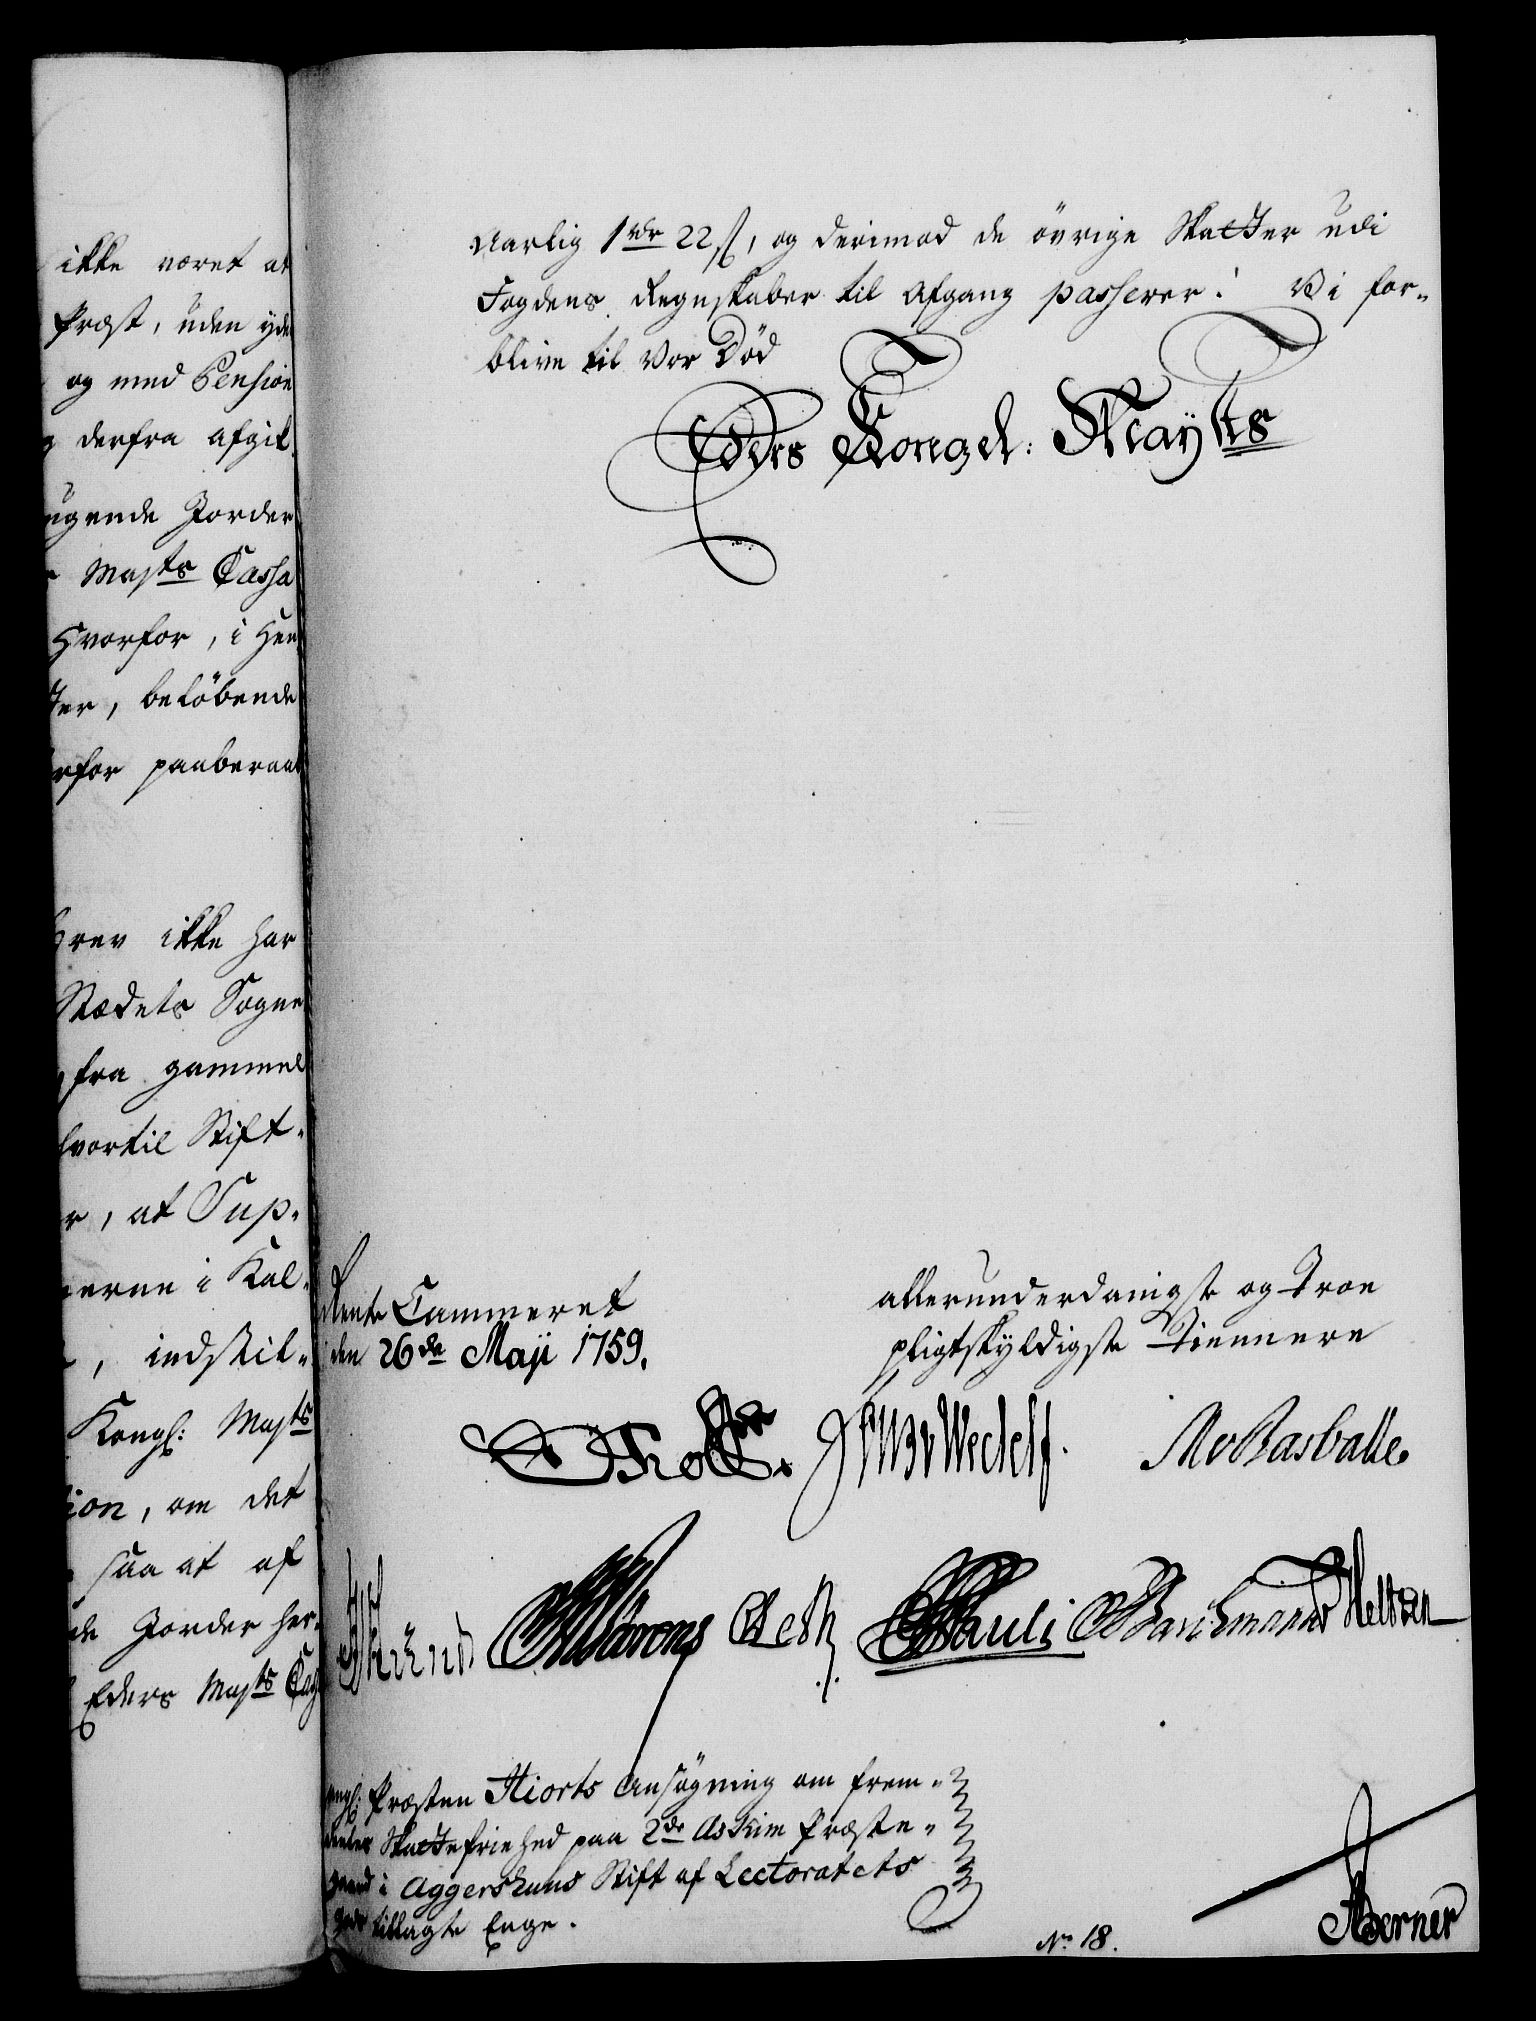 ikke været at
Præst, uden yde
og med Pension
derfra afgik
ugende Jorder
Majts Cassa
Hvorfor, i Hen
ter, beløbende
rfor paaberaabt
brev ikke har
Stædets Sogne
fra gammel
hvortil Stift-
r, at Sup-
erne i Kal-
, indstil-
Kongl: Majts
tion, om det
saa at af
de Jorder her-
Eders Majts Cas
Aarlig 1 rdr 22 ß, og derimod de övrige Skatter udi
Fogdens Regnskaber til Afgang passerer! Vi for-
blive til vor Död
Eders Kongel: Mayts
Rente Cammeret
den 26de Maji 1759.
allerunderdanigste og Troe
pligtskyldigste Tiennere
Wedelf.
Pauli
Præsten Hiorts Ansøgning om frem-
deeles Skattefriehed paa 2de Askim Præste-
gaard i Aggershuus Stift af Lectoratets
tillagte Enge.
No 18.
Berner